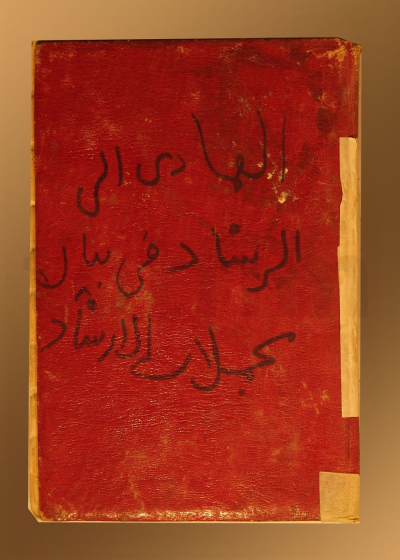 الهادى الى
الرشاد فى بيان
مجملات الارشاد